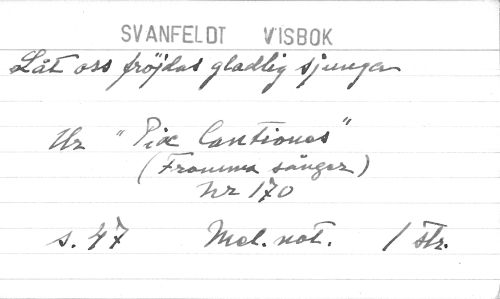 SVANFELDT VISBOK
Låt oss fröjdas gladlig sjunga
Ur "Piæ Cantiones"
(Fromma sånger)
Nr 170
s. 47 Mel. not. 1 str.